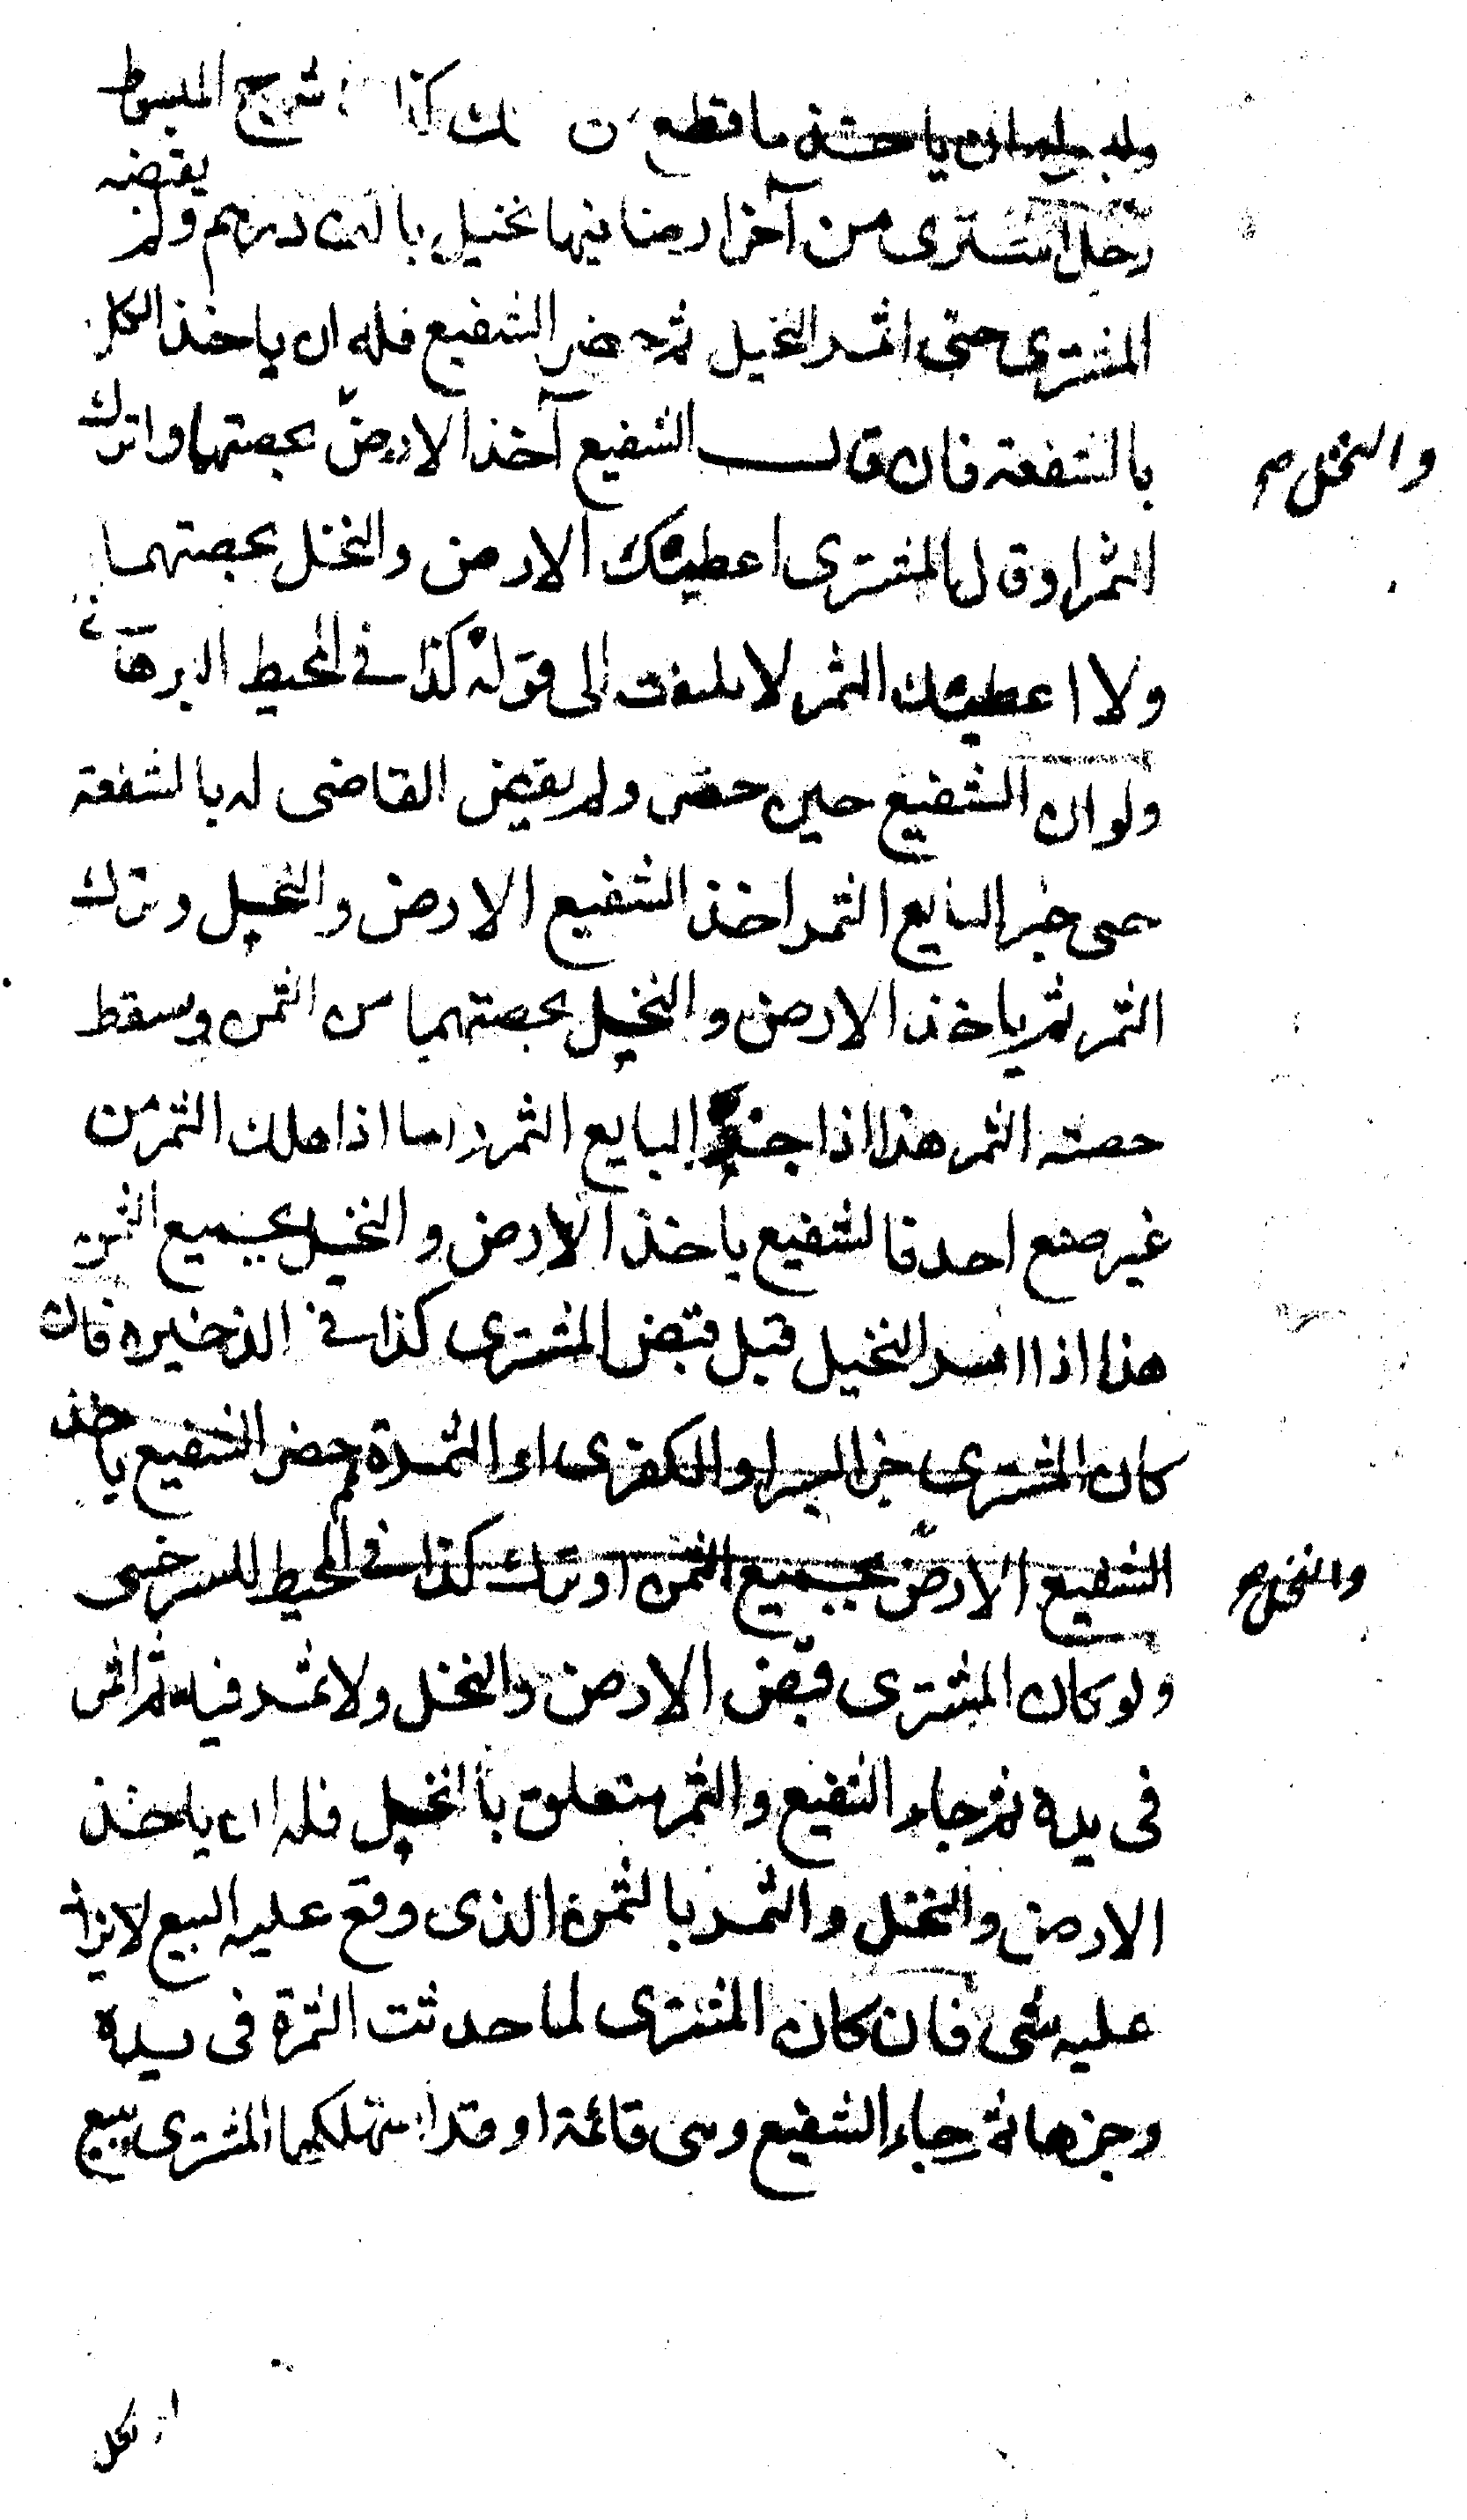 وليس له ان ياخذ ما قطع من ذلك كذا شرح المبسوط
رجل اشترى من آخر ارضا فيها نخيل بالف درهم ولم يقبضه
المشترى حتى اثمر النخيل ثم حضر الشفيع فله ان ياخذ الكل
بالشفعة فان قال الشفيع آخذ الارض بحصتها واترك
والنخل صح
الثمر او قال المشترى اعطيتك الارض والنخل بحصتهما
ولا اعطيتك الثمر لا يلتفت الى قوله كذا فى المحيط البرهانى
ولو ان الشفيع حين حضر ولم يقض القاضى له بالشفعة
حتى جز البايع الثمر اخذ الشفيع الارض والنخيل وترك
الثمر ثم ياخذ الارض والنخيل بحصتهما من الثمن وسقط
حصته الثمر هذا اذا جذ البايع الثمر اما اذا هلك الثمر من
غير صنع احد فالشفيع ياخذ الارض والنخيل بجميع الثمن
هذا اذا اثمر النخيل قبل قبض المشترى كذا فى الذخيره فان
كان المشترى جز البسر او الكفرى او الثمرة ثم حضر الشفيع ياخذ
الشفيع الارض بجميع الثمن او ترك كذا فى المحيط للسرخسى
والنخل صح
ولو كان المشترى قبض الارض والنخل ولا ثمر فيه ثم اثمر
فى يده ثم جاء الشفيع والثمر متعلق بالنخيل فله ان ياخذ
الارض والنخل والثمر بالثمن الذى وقع عليه البيع لا يزاد
عليه شى فان كان المشترى لما حدثت الثمرة فى يده
وجزها ثم جاء الشفيع وهى قائمة او قد استهلكها المشترى ببيع
او اكل